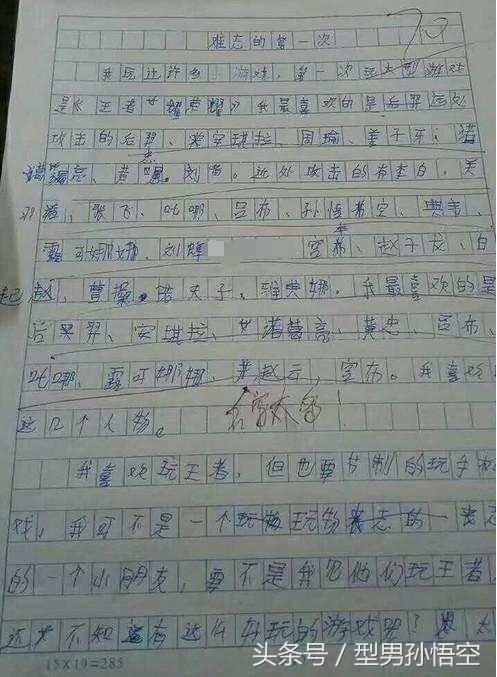 70
难忘的第一次
我玩过许多游戏,第一次玩大型游戏
是《王者荣耀》我最喜欢的是后羿远处
攻击的后羿、安琪拉、周瑜、姜子牙、诸
葛亮、黄忠、刘备。近处攻击的有李白、关
羽、张飞、哪吒、吕布、孙悟空、典韦、
露娜娜、刘禅 赵子龙、白
起、曹操、老夫子、雅典娜。我最喜欢的是
后羿、安琪拉、诸葛亮、黄忠、吕布、
露娜娜、赵云
名字太多!
这几个人物。
我喜欢玩王者,但也要节制的玩手机
戏,我可不是一个玩物丧志的
的一个小朋克,要不是我见他们玩王者
还不知道有这么好玩的游戏呢?
15×19=285
头条号/型男孙悟空